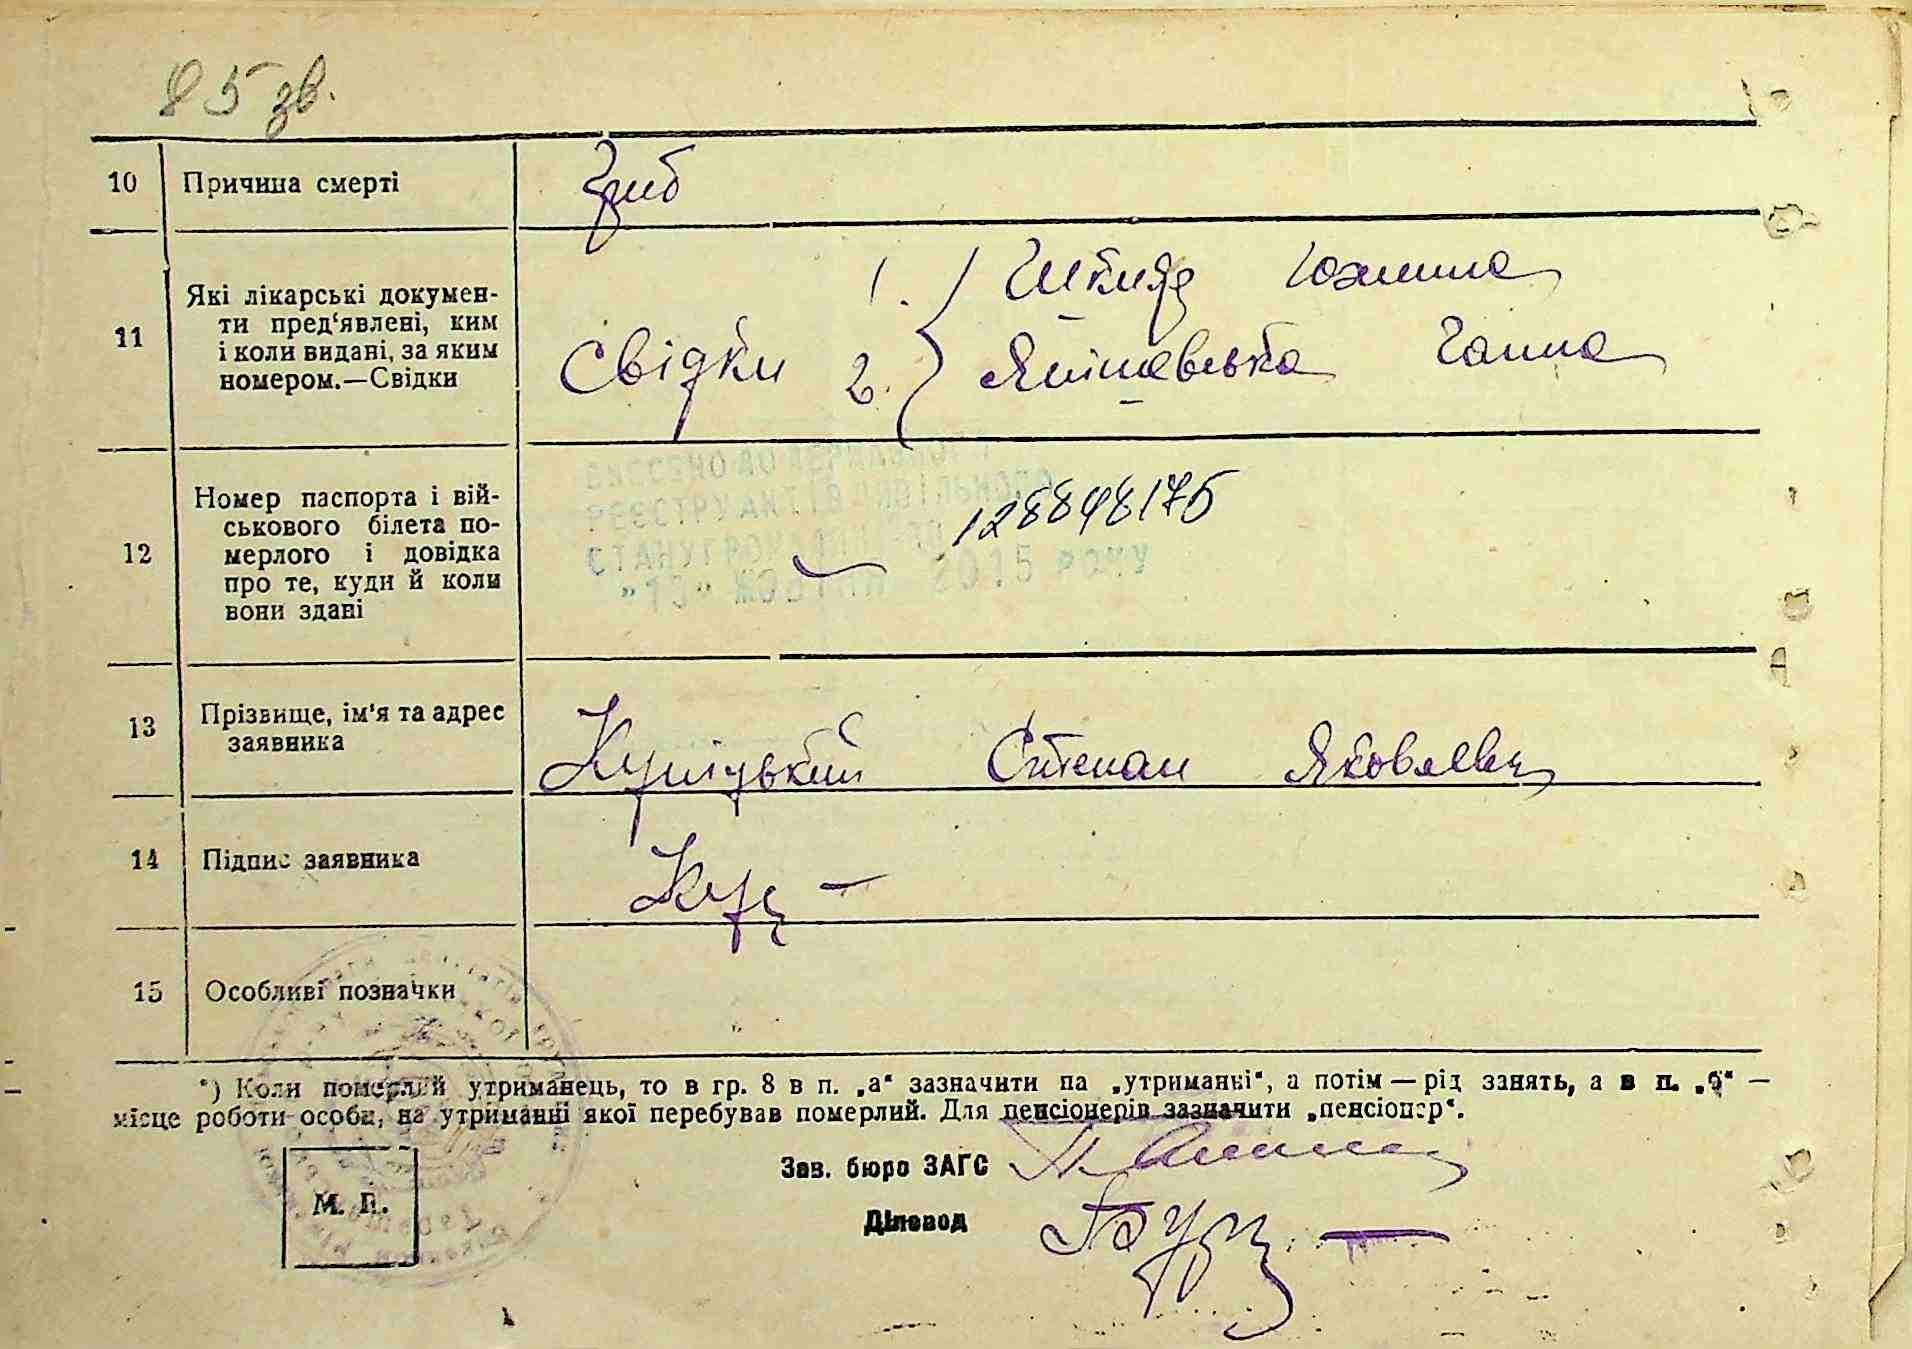 85 зв.
10 Причина смерті
Гриб
11 Які лікарські докумен-
ти пред‘явлені, ким
і коли видані, за яким
номером.—Свідки
Свідки 1.
2.
Ганна
12 Номер паспорта і вій-
ськового білета по-
мерлого і довідка
про те, куди й коли
вони здані
ВНЕСЕНО ДО ДЕРЖАВНОГО
РЕЄСТРУ АКТІВ ЦИВІЛЬНОГО
СТАНУ ГРОМАДЯН
"15" ЖОВТНЯ 2015 РОКУ
128848175
13 Прізвище, ім'я та адрес
заявника
Степан Яковлевич
14 Підпис заявника
15 Особливі позначки
*) Коли померлий утриманець, то в гр. 8 в п. „а“ зазначити на „утриманні“, а потім — рід занять, а в п. „б“ —
місце роботи особи, на утриманні якої перебував померлий. Для пенсіонерів зазначити „пенсіонер“.
Зав. бюро ЗАГС
Діловод
М. П.